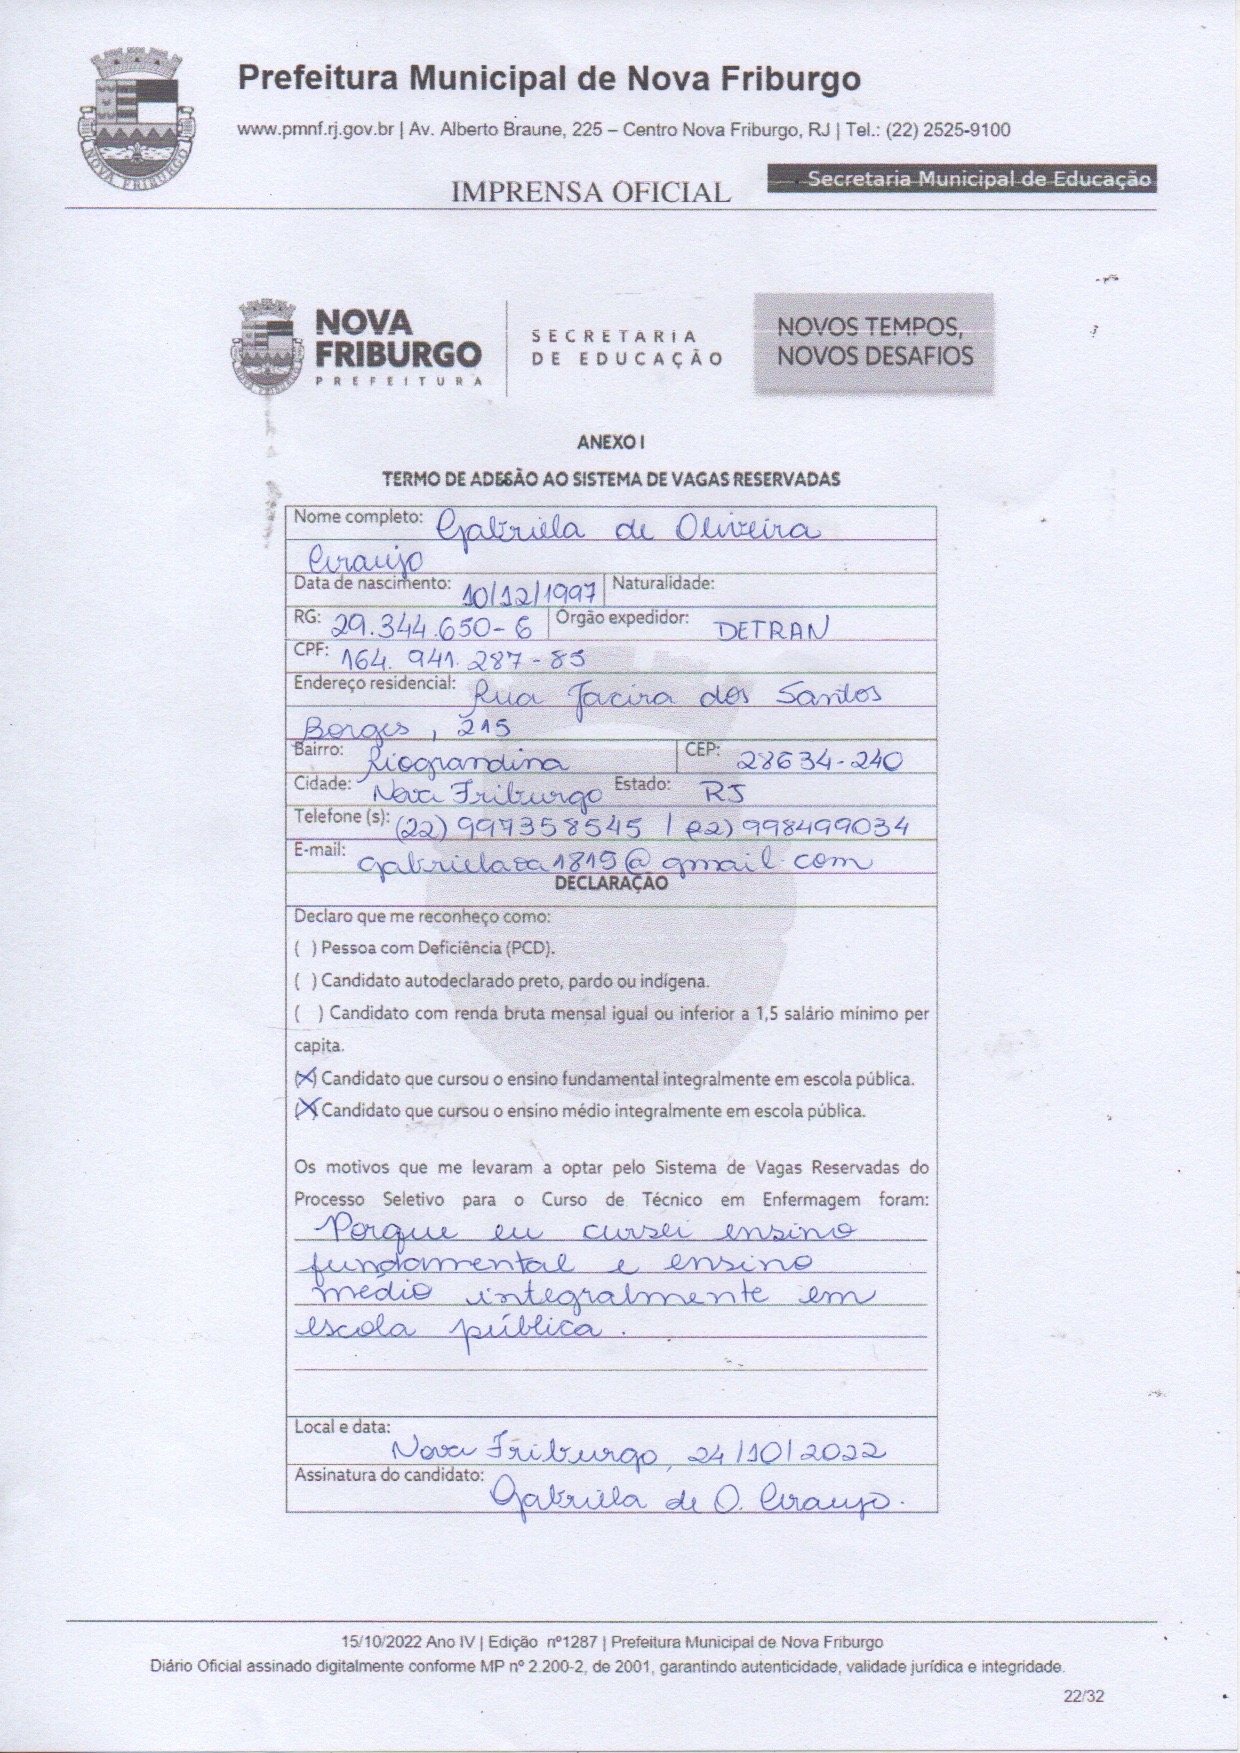 Prefeitura Municipal de Nova Friburgo
www.pmnf.rj.gov.br | Av. Alberto Braune, 225 – Centro Nova Friburgo, RJ | Tel.: (22) 2525-9100
Secretaria Municipal de Educação
IMPRENSA OFICIAL
NOVA FRIBURGO
NOVA
FRIBURGO
PREFEITURA
SECRETARIA
DE EDUCAÇÃO
NOVOS TEMPOS,
NOVOS DESAFIOS
ANEXO I
TERMO DE ADESÃO AO SISTEMA DE VAGAS RESERVADAS
Nome completo: Gabriela de Oliveira
Araujo
Data de nascimento: 10/12/1997 Naturalidade:
RG: 29.344.650-6 Orgão expedidor: DETRAN
CPF: 164.941.287-85
Endereço residencial: Rua Jacira dos Santos
Borges, 215
Bairro: Riograndina CEP: 28634-240
Cidade: Nova Friburgo Estado: RJ
Telefone (s): (22) 997358545 / (22) 998499034
E-mail: @gmail.com
DECLARAÇÃO
Declaro que me reconheço como:
( ) Pessoa com Deficiência (PCD).
( ) Candidato autodeclarado preto, pardo ou indígena.
( ) Candidato com renda bruta mensal igual ou inferior a 1,5 salário mínimo per
capita.
(X) Candidato que cursou o ensino fundamental integralmente em escola pública.
(X) Candidato que cursou o ensino médio integralmente em escola pública.
Os motivos que me levaram a optar pelo Sistema de Vagas Reservadas do
Processo Seletivo para o Curso de Técnico em Enfermagem foram:
Porque eu cursei ensino
fundamental e ensino
médio integralmente em
escola pública.
Local e data:
Nova Friburgo, 24/10/2022
Assinatura do candidato: Gabriela de O. Araujo.
15/10/2022 Ano IV | Edição nº1287 | Prefeitura Municipal de Nova Friburgo
Diário Oficial assinado digitalmente conforme MP nº 2.200-2, de 2001, garantindo autenticidade, validade jurídica e integridade.
22/32